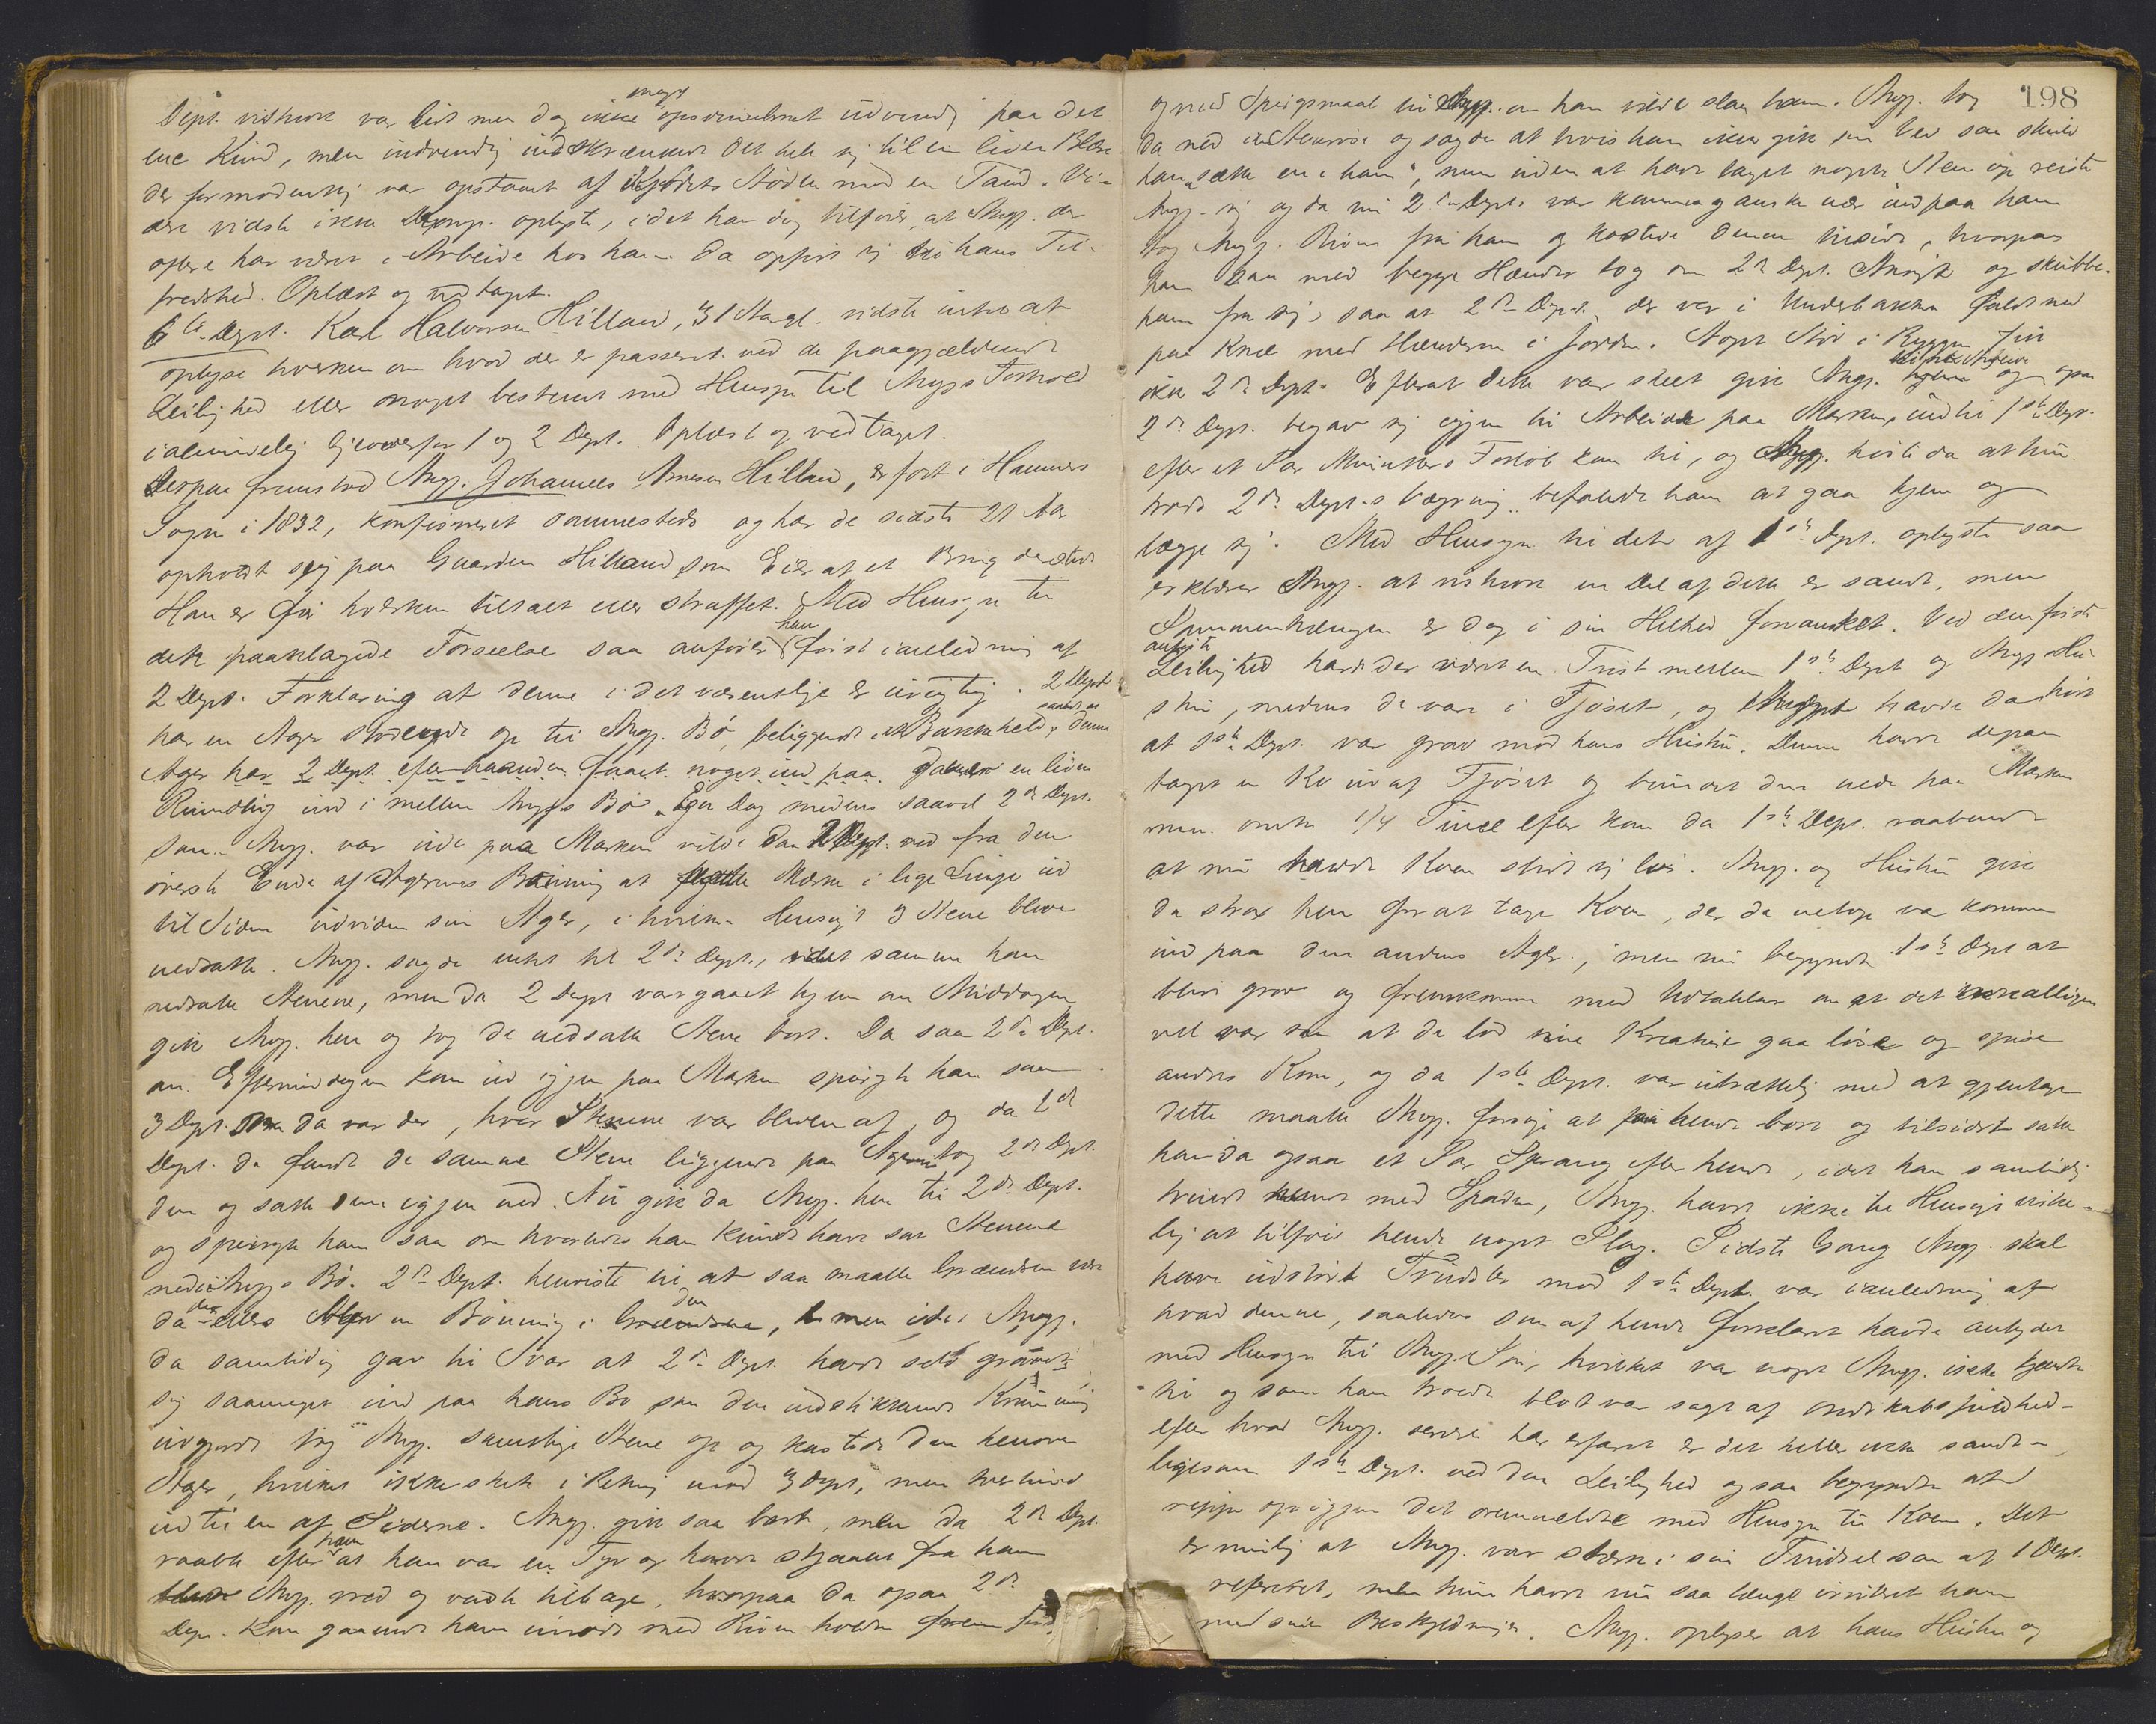 meget
Dept. vistnok var lidt men dog ikke opsvulmet udvendig paa det
ene Kind, men indvendig indskrænkede det hele sig til en liden Blære
der formodentlig var opstaaet af Kjødets Støden mod en Tand. Vi-
dere vidste ikke Deps. oplyste, idet han dog tilføier, at Angj. der
oftere har været i Arbeide hos ham da opført sig til hans Til-
fredshed. Oplæst og vedtaget.
6te Dept. Karl Halvorsen Hilland, 31 Aar gl. vidste intet at
oplyse hverken om hvad der er passeret ved de paagjældende
Leilighed eller noget bestemt med Hensyn til Angjs Forhold
i almindelig ligeoverfor 1 og 2 Dept. Oplæst og vedtaget.
Derpaa fremstod Angj. Johannes Arnesen Hilland, er født i Hammers
Sogn i 1832, konfirmeret sammesteds og har de sidste 21 Aar
opholdt sig paa Gaarden Hilland som Eier af et Brug dersteds
Han er før hverken tiltalt eller straffet. Med Hensyn til
dette paaklagede Forseelse saa anfører han først i anledning af
2 Dept. Forklaring at denne i det væsentlige er urigtig. 2 Dept
har en Ager stødende op til Angj. Bø, beliggende i et Bakkeheld, denne
Ager har 2 Dept. efterhaanden faaet noget ind paa en liden
Runding ind i mellem Angjs Bø. En Dag medens saavel 2de Dept.
som Angj. var ude paa Marken vilde da 2 Dept. ved fra den
øverste Ende af Agerens Bøining at flytte Mærke i lige Linje ud
til Siden udviden sin Ager, i hvilken Hensigt 3 Stene bleve
nedsatte. Angj. sagde intet til 2de Dept., idet samme han
nedsatte Stenene, men da 2 Dept var gaaet hjem om Middagen
gik Angj. hen og tog de nedsatte Stene bort. Da saa 2de Dept.
om Eftermiddagen kom ud igjen paa Marken spurgte han som
3 Dept. som da var der, hvor Stenene var bleven af, og da 2de
Dept. da fandt de samme Stene liggende paa Ageren tog 2de Dept.
dem og satte dem igjen ned. Nu gik da Angj. hen til 2de Dept.
og spurgte ham saa om hvorledes han kunde have sat Stenene
ned i Angjs Bø. 2de Dept. henviste til at saa maatte Grændsen være
da der ellers blev en Bøining i Grændsen, men idet Angj.
da samtidig gav til Svar at 2de Dept. havde selv gravet
sig saameget ind paa hans Bø som den udstikkende Krumning
udgjorde tog Angj. samtlige Stene op og kastede dem henover
Ager, hvilket ikke skete i Retning mod 3 Dept, men tvertimod
ud til en af Siderne. Angj. gik saa bort, men da 2de Dept.
raabte efter ham at han var en Tyv og havde stjaalet fra ham
Angj. vred og vendte tilbage, hvorpaa da ogsaa 2de
Dept. kom gaaende ham imøde med Riven holdt frem for
198
og med Spørgsmaal til Angj. om han vilde slaa ham. Angj. tog
da ned i Stenrøs og sagde at hvis han ikke gik sin Vei saa skulde
han "sætte en i ham", men uden at have taget nogen Sten op reiste
Angj. sig og da nu 2de Dept. var kommen ganske nær ind paa ham
tog Angj. Riven fra ham og kastede denne tilside, hvorpaa
han saa med begge Hænder tog om 2de Dept. Ansigt og skubbe-
ham fra sig, saa at 2de Dept. der var i Underbakken faldt ned
paa Knæ med Hænderne i Jorden. Noget Stød i Ryggen fik
ikke 2de Dept. Efterat dette var skeet gik Angj. og ogsaa
2de Dept. begav sig igjen til Arbeide paa Marken, indtil 1ste Dept.
efter et Par Minutters Forløb kom til, og Angj. hørte da at hun
trods 2de Dept.s Vægring befalede ham at gaa hjem og
lægge sig. Med Hensyn til dette af 1ste Dept. oplyste saa
erklærer Angj. at vistnok en Del af dette er sandt, men
Sammenhængen er dog i sin Helhed forvansket. Ved den første
anførte
Leilighed havde der været en Trist mellem 1ste Dept og Angj Hu-
stru, medens de vare i Fjøset, og Angj havde da hørt
at 1ste Dept. var grov mod hans Hustru. Denne havde derpaa
taget en Ko ud af Fjøset og bundet den nede paa Marken
men omtr 1/4 Time efter kom da 1ste Dept. raabende
at nu havde Koen slidt sig løs. Angj. og Hustru gik
da strax hen for at tage Koen, der da netop var kommen
ind paa den andens Ager, men nu begyndte 1ste Dept at
blive grov og fremkomme med Udtalelser om at det
vel var saa at de lod sine Kreature gaa løse og spise
andres Korn, og da 1ste Dept. var utrættelig med at gjentage
dette maatte Angj. forsøge at faa hende bort og tilsidst satte
han da ogsaa et Par Sprang efter hende, idet han samtidig
truede hende med Spaden, Angj. havde ikke til Hensigt virke-
lig at tilføie hende noget Slag. Sidste Gang Angj. skal
have udstødt Trudsler mod 1ste Dept. var i anledning af
hvad denne, saaledes som af hende forklaret havde antydet
med Hensyn til Angj. Søn, hvilket var noget Angj. ikke kjendte
til og som han troede blot var sagt af Ondskabsfuldhed-
efter hvad Angj. senere har erfaret er det heller ikke sandt -
ligesom 1ste Dept. ved den Leilighed ogsaa begyndte at
rippe op igjen det ommeldte med Hensyn til Koen. Det
er mulig at Angj. var stærk i sin Trudsel som af 1 Dept.
refereret, men hun havde nu saa længe irriteret ham
med sine Beskyldninger. Angj. oplyser at hans Hustru og